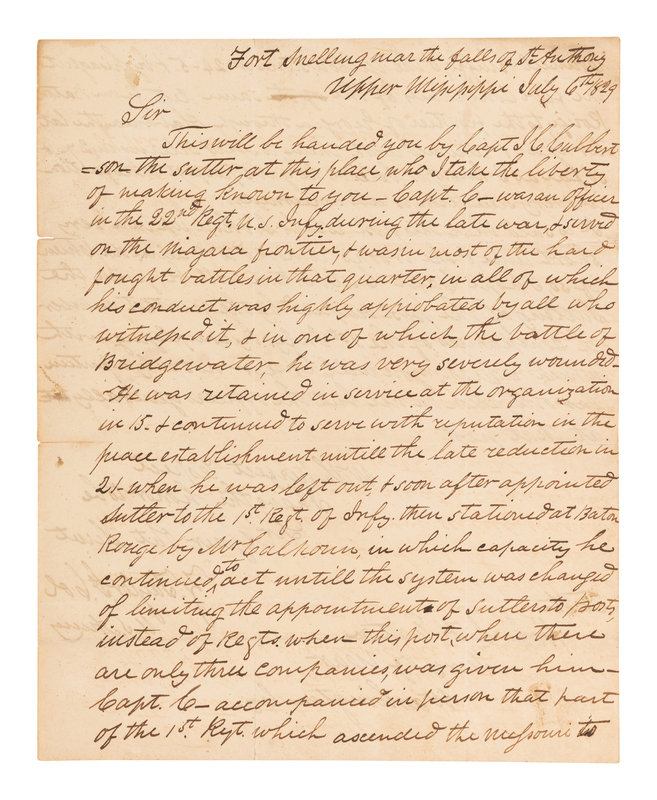 Fort Snelling near the falls of St Anthony
Upper Missisippi July 6th 1829
Sir
This will be handed you by Capt J C Culbert
=son the sutler, at this place who I take the liberty
of making known to you – Capt. C – was an officer
in the 22nd Regt, U.S. Infy, during the late war, & served
on the Niagara frontier, & was in most of the hard
fought battles in that quarter, in all of which
his conduct was highly approbated by all who
witnessed it, & in one of which, the battle of
Bridgewater, he was very severely wounded –
He was retained in service at the organization
in 15. & continued to serve with reputation in the
peace establishment untill the late reduction in
21 when he was left out, & soon after appointed
Sutler to the 1st Regt. of Infy. then stationed at Baton
Rouge by Mr Calhoun, in which capacity he
continued to act untill the system was changed
of limiting the appointment of Sutlers to Posts,
instead of Regts. when this post, where there
are only three companies, was given him –
Capt. C – accompanied in person that part
of the 1st Regt. which ascended the Missouri to